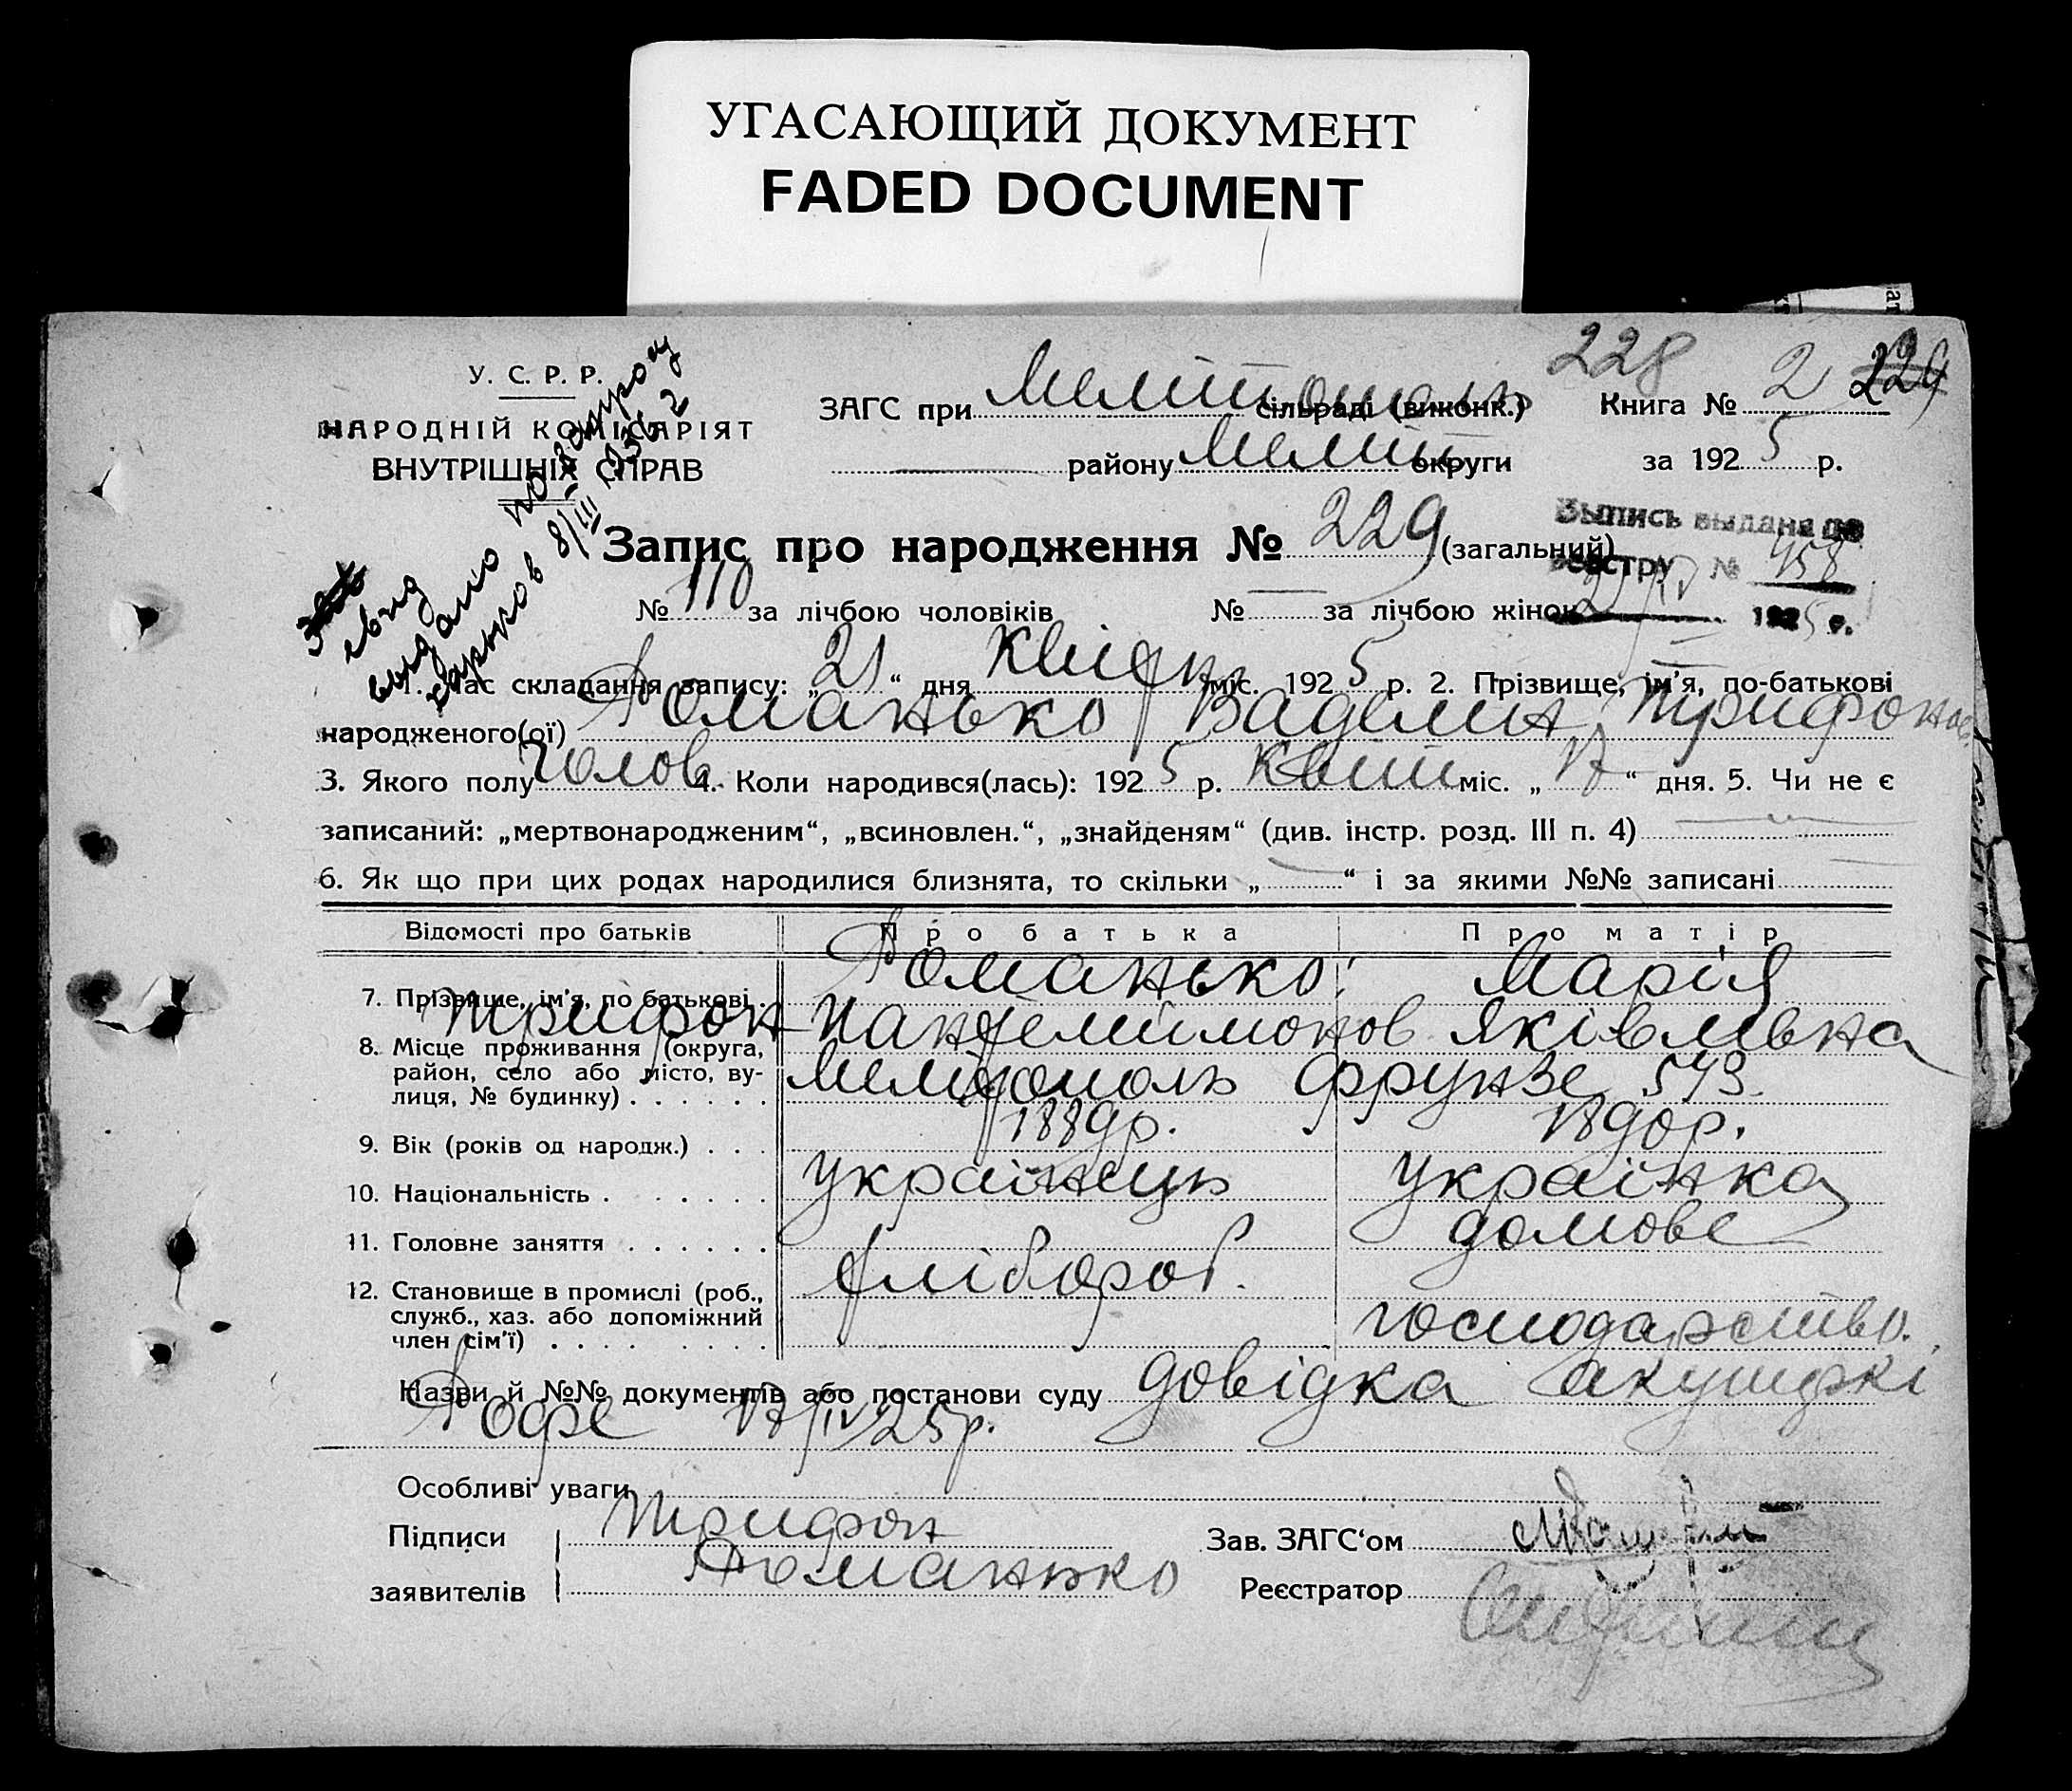 УГАСАЮЩИЙ ДОКУМЕНТ
FADED DOCUMENT
228
У. С. Р. Р.
НАРОДНІЙ КОМІСАРІЯТ
ВНУТРІШНІХ СПРАВ
ЗАГС при Мелітополь сільраді (виконк.) Книга № 2 229
району Меліт округи за 1925 р.
видано по
Харьков 8/III
Запис про народження № 229 (загальний)
Выпись выдана по
реестру № 458
1925 г.
№ 110 за лічбою чоловіків № — за лічбою жінок
1. Час складання запису: „21“ дня Квітн міс. 1925 р. 2. Прізвище, ім’я, по-батькові
народженого(ої) Романько Вадемин Трифонов.
3. Якого полу Чолов. 4. Коли народився(лась): 1925 р. Квіт міс. „17“ дня. 5. Чи не є
записаний: „мертвонародженим“, „всиновлен.“, „знайденям“ (див. інстр. розд. III п. 4)
6. Як що при цих родах народилися близнята, то скільки „ “ і за якими №№ записані
Відомості про батьків Про батька Про матір
7. Прізвище, ім’я, по батькові Романько Марія
Трифон Пантелиймонов Яківлівна
8. Місце проживання (округа,
район, село або місто, ву-
лиця, № будинку) Мелітополь Фрунзе 573.
9. Вік (років од народж.) 1889р. 1890р.
10. Національність українець українка
11. Головне заняття хлібороб. домове
12. Становище в промислі (роб.,
служб., хаз. або допоміжний
член сім’ї) господарство.
Назви й №№ документів або постанови суду довідка акушерки
Рофе 17/IV 25р.
Особливі уваги
Підписи Трифон Зав. ЗАГС‘ом
заявителів Романько Реєстратор